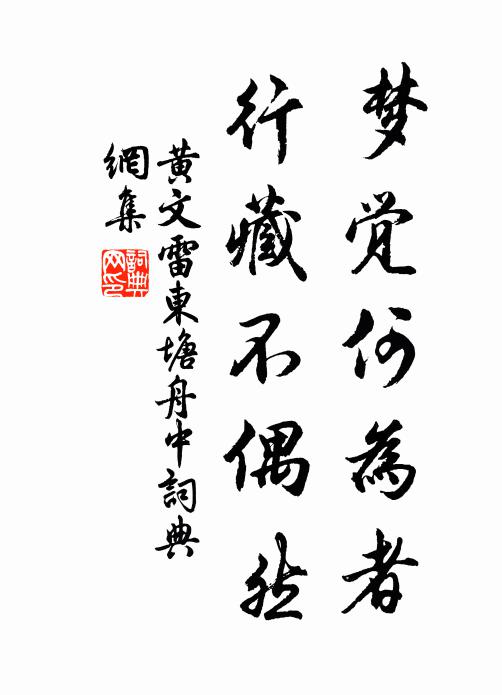 梦觉何為者
行藏不偶然
黄文雷東塘舟中詞典
網集
詞典网印